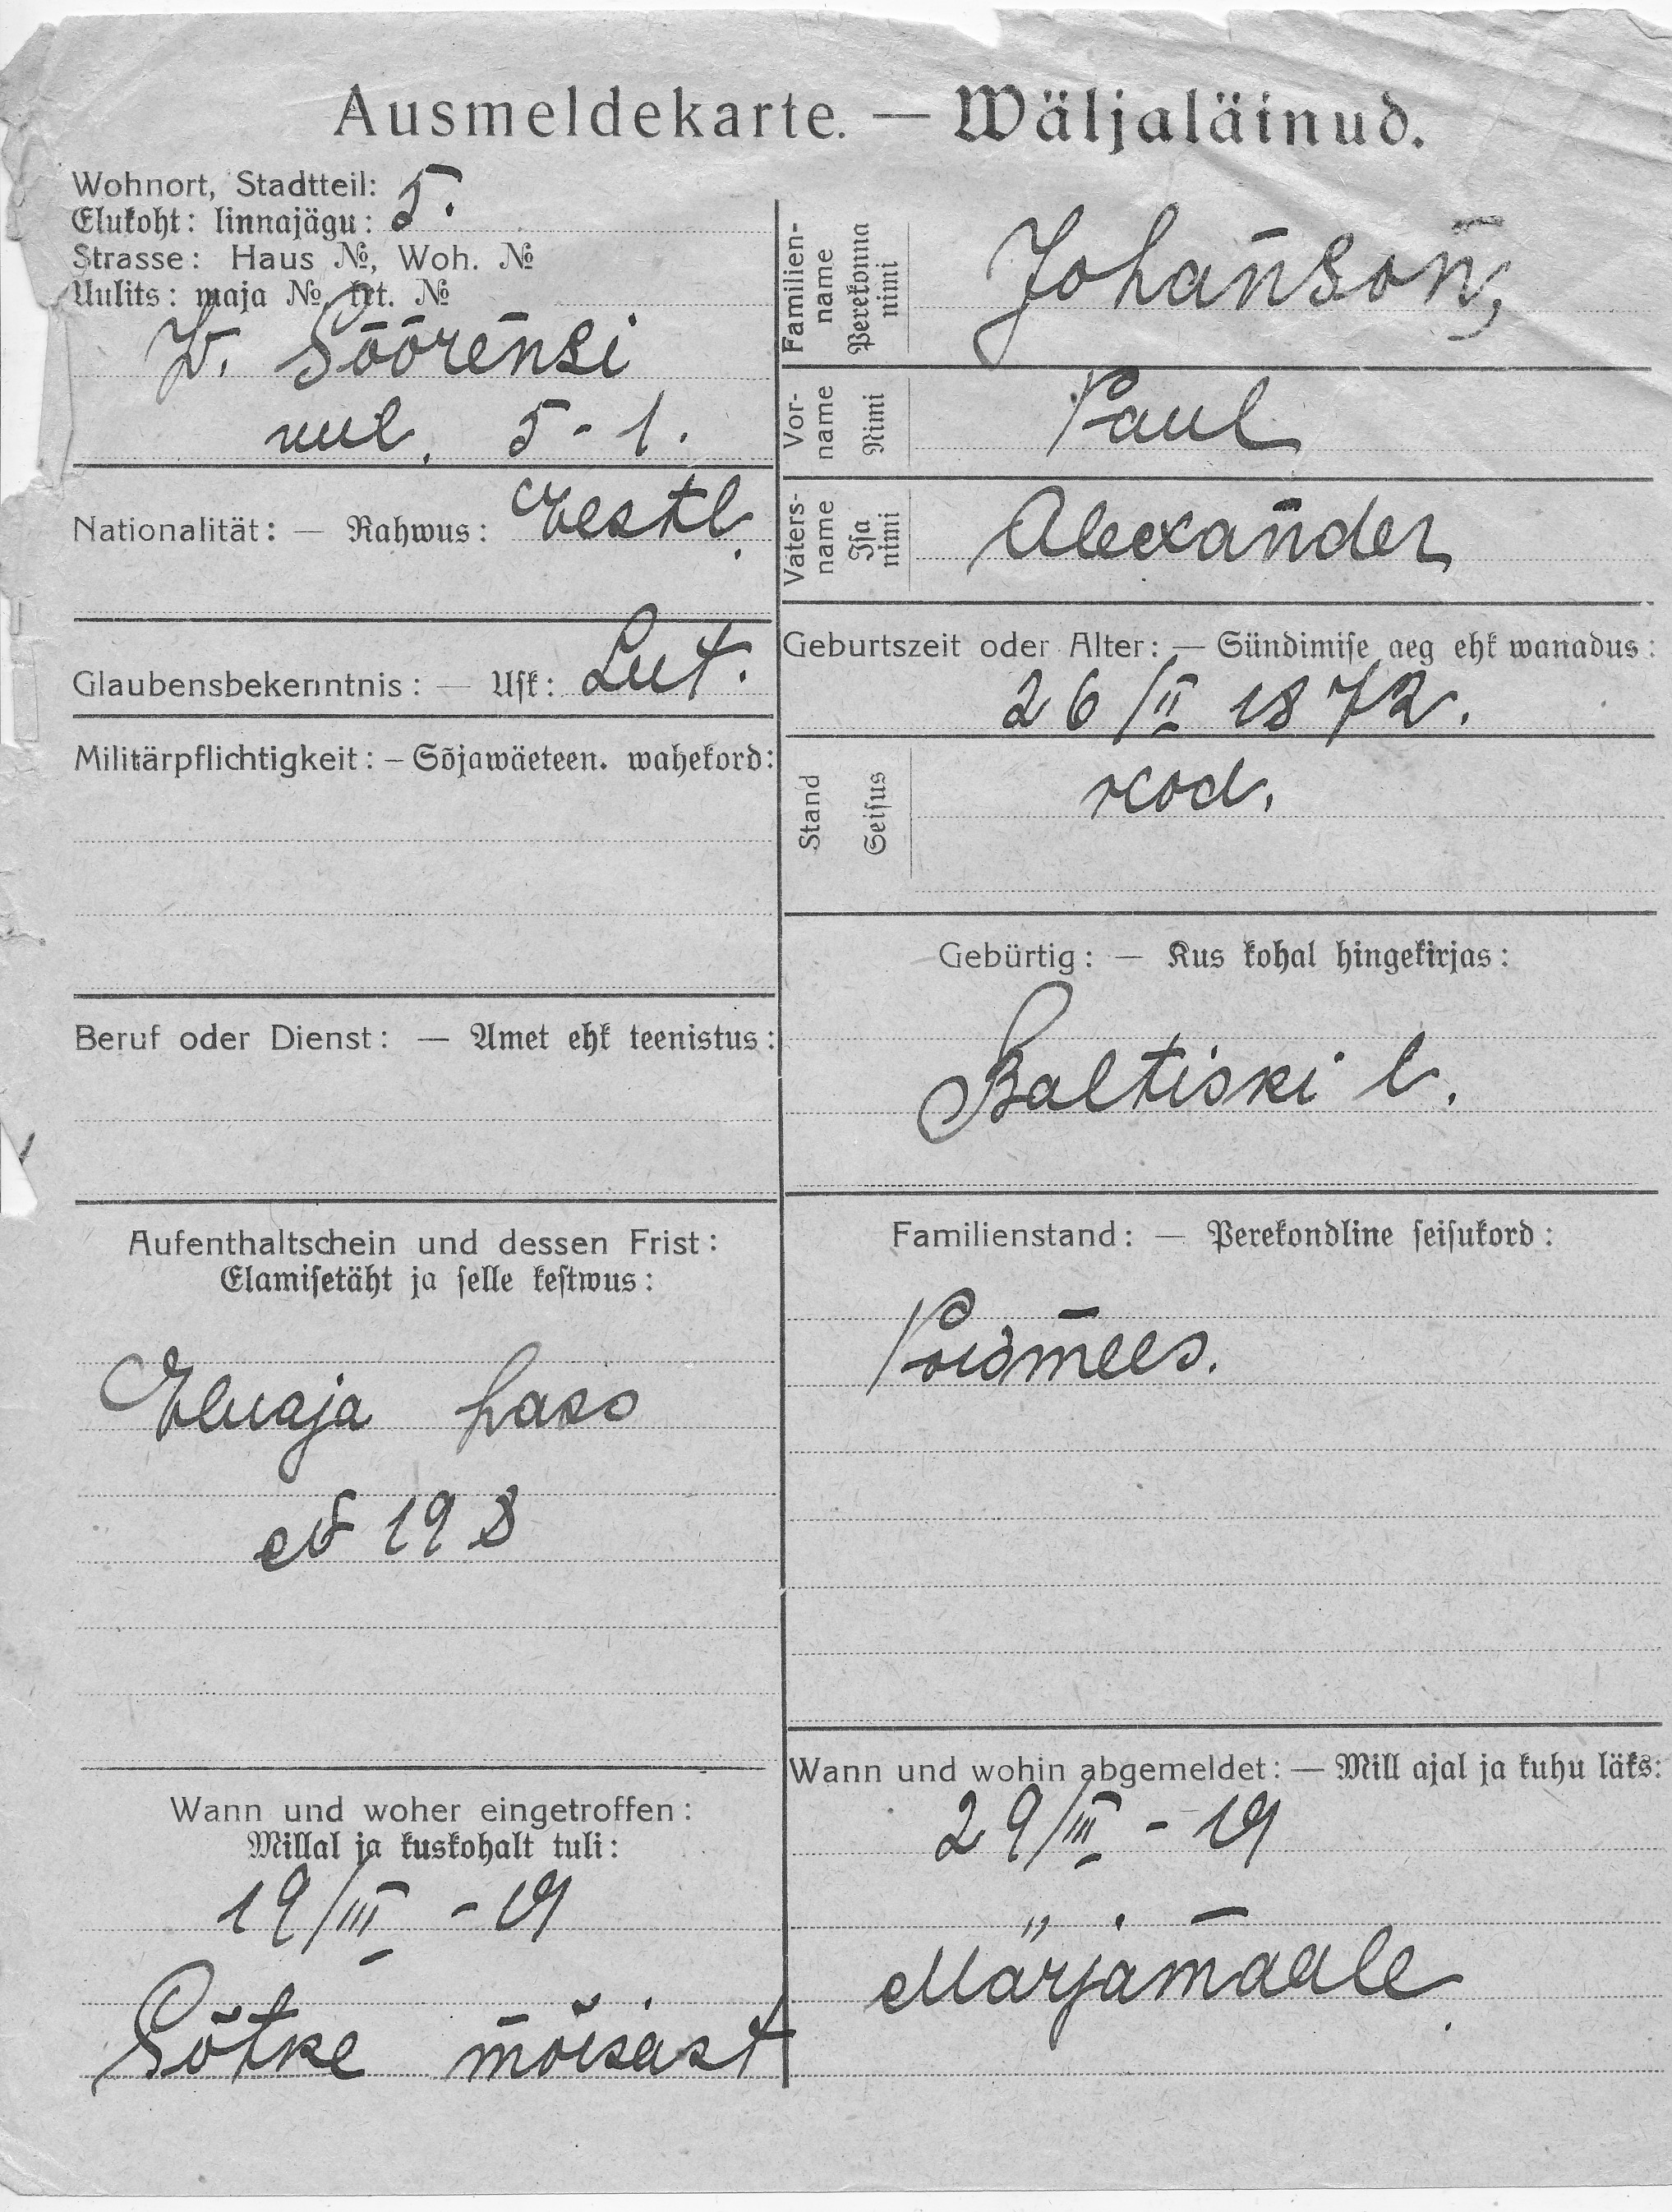 Ausmeldekarte. — Wäljaläinud.
Wohnort, Stadtteil:
Elukoht: linnajägu: 5.
Strasse: Haus №, Woh. №
Uulits: maja №, krt. №
W. Söörensi
uul. 5-1.
Nationalität: — Rahwus: Eestl.
Glaubensbekenntnis: — Usk: Lut.
Militärpflichtigkeit: – Sõjawäeteen. wahekord:
Beruf oder Dienst: — Amet ehk teenistus:
Aufenthaltschein und dessen Frist:
Elamisetäht ja selle kestwus:
Eluaja pass
198
Wann und woher eingetroffen:
Millal ja kuskohalt tuli:
19/III - 19
Sõtke mõisast
Familien-
name
Perekonna
nimi
Johanson,
Vor-
name
Nimi
Paul
Vaters-
name
Isa
nimi
Alexander
Geburtszeit oder Alter: — Sündimise aeg ehk wanadus:
26/II 1872.
Stand
Seisus
kod.
Gebürtig: — Kus kohal hingekirjas:
Baltiski l.
Familienstand: — Perekondline seisukord:
Poismees.
Wann und wohin abgemeldet: — Mill ajal ja kuhu läks:
29/III - 19
Märjamaale